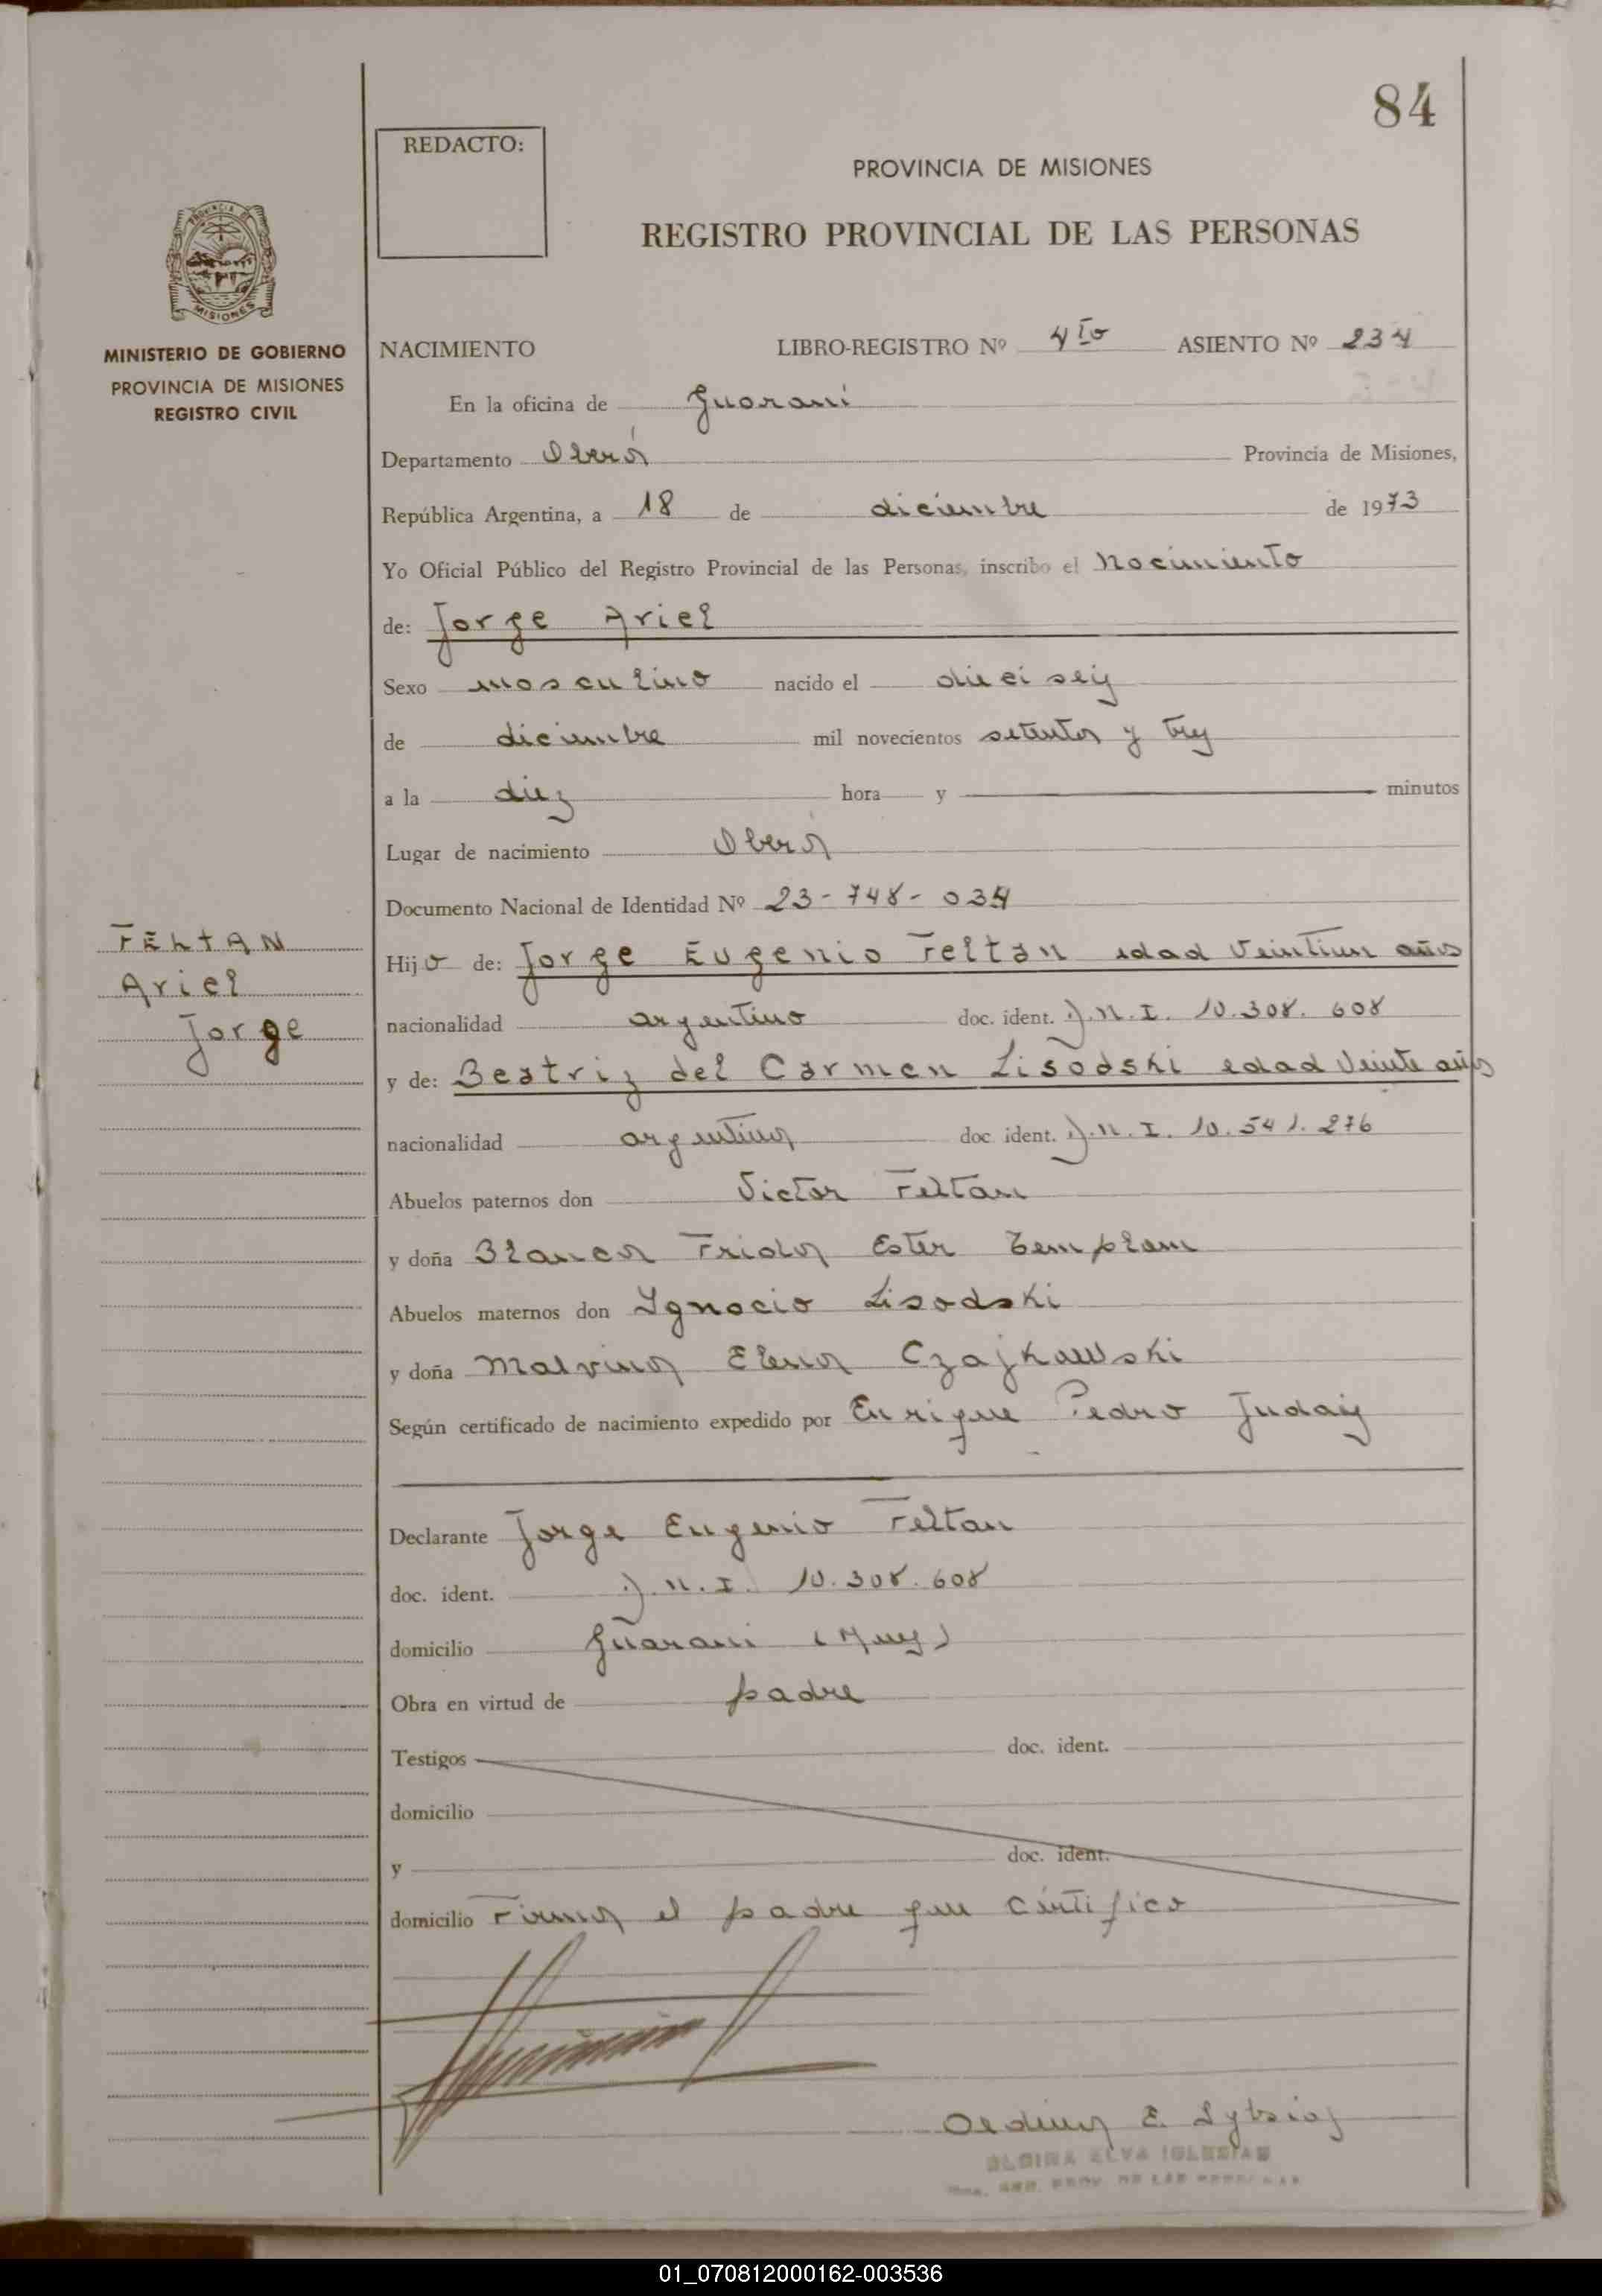 84
REDACTO:
PROVINCIA DE MISIONES
REGISTRO PROVINCIAL DE LAS PERSONAS
PROVINCIA DE
MISIONES
MINISTERIO DE GOBIERNO
PROVINCIA DE MISIONES
REGISTRO CIVIL
NACIMIENTO LIBRO-REGISTRO Nº 4to ASIENTO Nº 234
En la oficina de Guarani
Departamento Oberá Provincia de Misiones,
República Argentina, a 18 de diciembre de 1973
Yo Oficial Público del Registro Provincial de las Personas, inscribo el Nacimiento
de: Jorge Ariel
Sexo masculino nacido el dieciseis
de diciembre mil novecientos setenta y tres
a la diez hora y minutos
Lugar de nacimiento Oberá
Documento Nacional de Identidad Nº 23-748-034
FELTAN
Ariel
Jorge
Hijo de: Jorge Eugenio Feltan edad Veintiun años
nacionalidad argentino doc. ident. D.N.I. 10.308.608
y de: Beatriz del Carmen Lisodski edad Veinte años
nacionalidad argentina doc. ident. D.N.I. 10.541.276
Abuelos paternos don Victor Feltan
y doña Blanca Frida Ester Templam
Abuelos maternos don Ignacio Lisodski
y doña Malvina Elena Czajkowski
Según certificado de nacimiento expedido por Enrique Pedro Judais
Declarante Jorge Eugenio Feltan
doc. ident. D.N.I. 10.308.608
domicilio Guarani (Mnes)
Obra en virtud de padre
Testigos doc. ident.
domicilio
y doc. ident.
domicilio Firma el padre que certifico
IGLESIAS
01_070812000162-003536